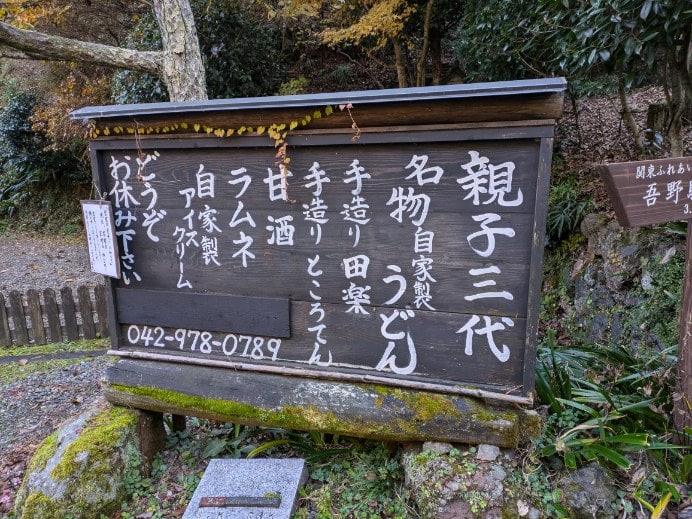 親子三代
名物自家製うどん
手造り田楽
手造りところてん
甘酒
ラムネ
自家製アイスクリーム
どうぞ
お休み下さい
042-978-0789
関東ふれあい
吾野